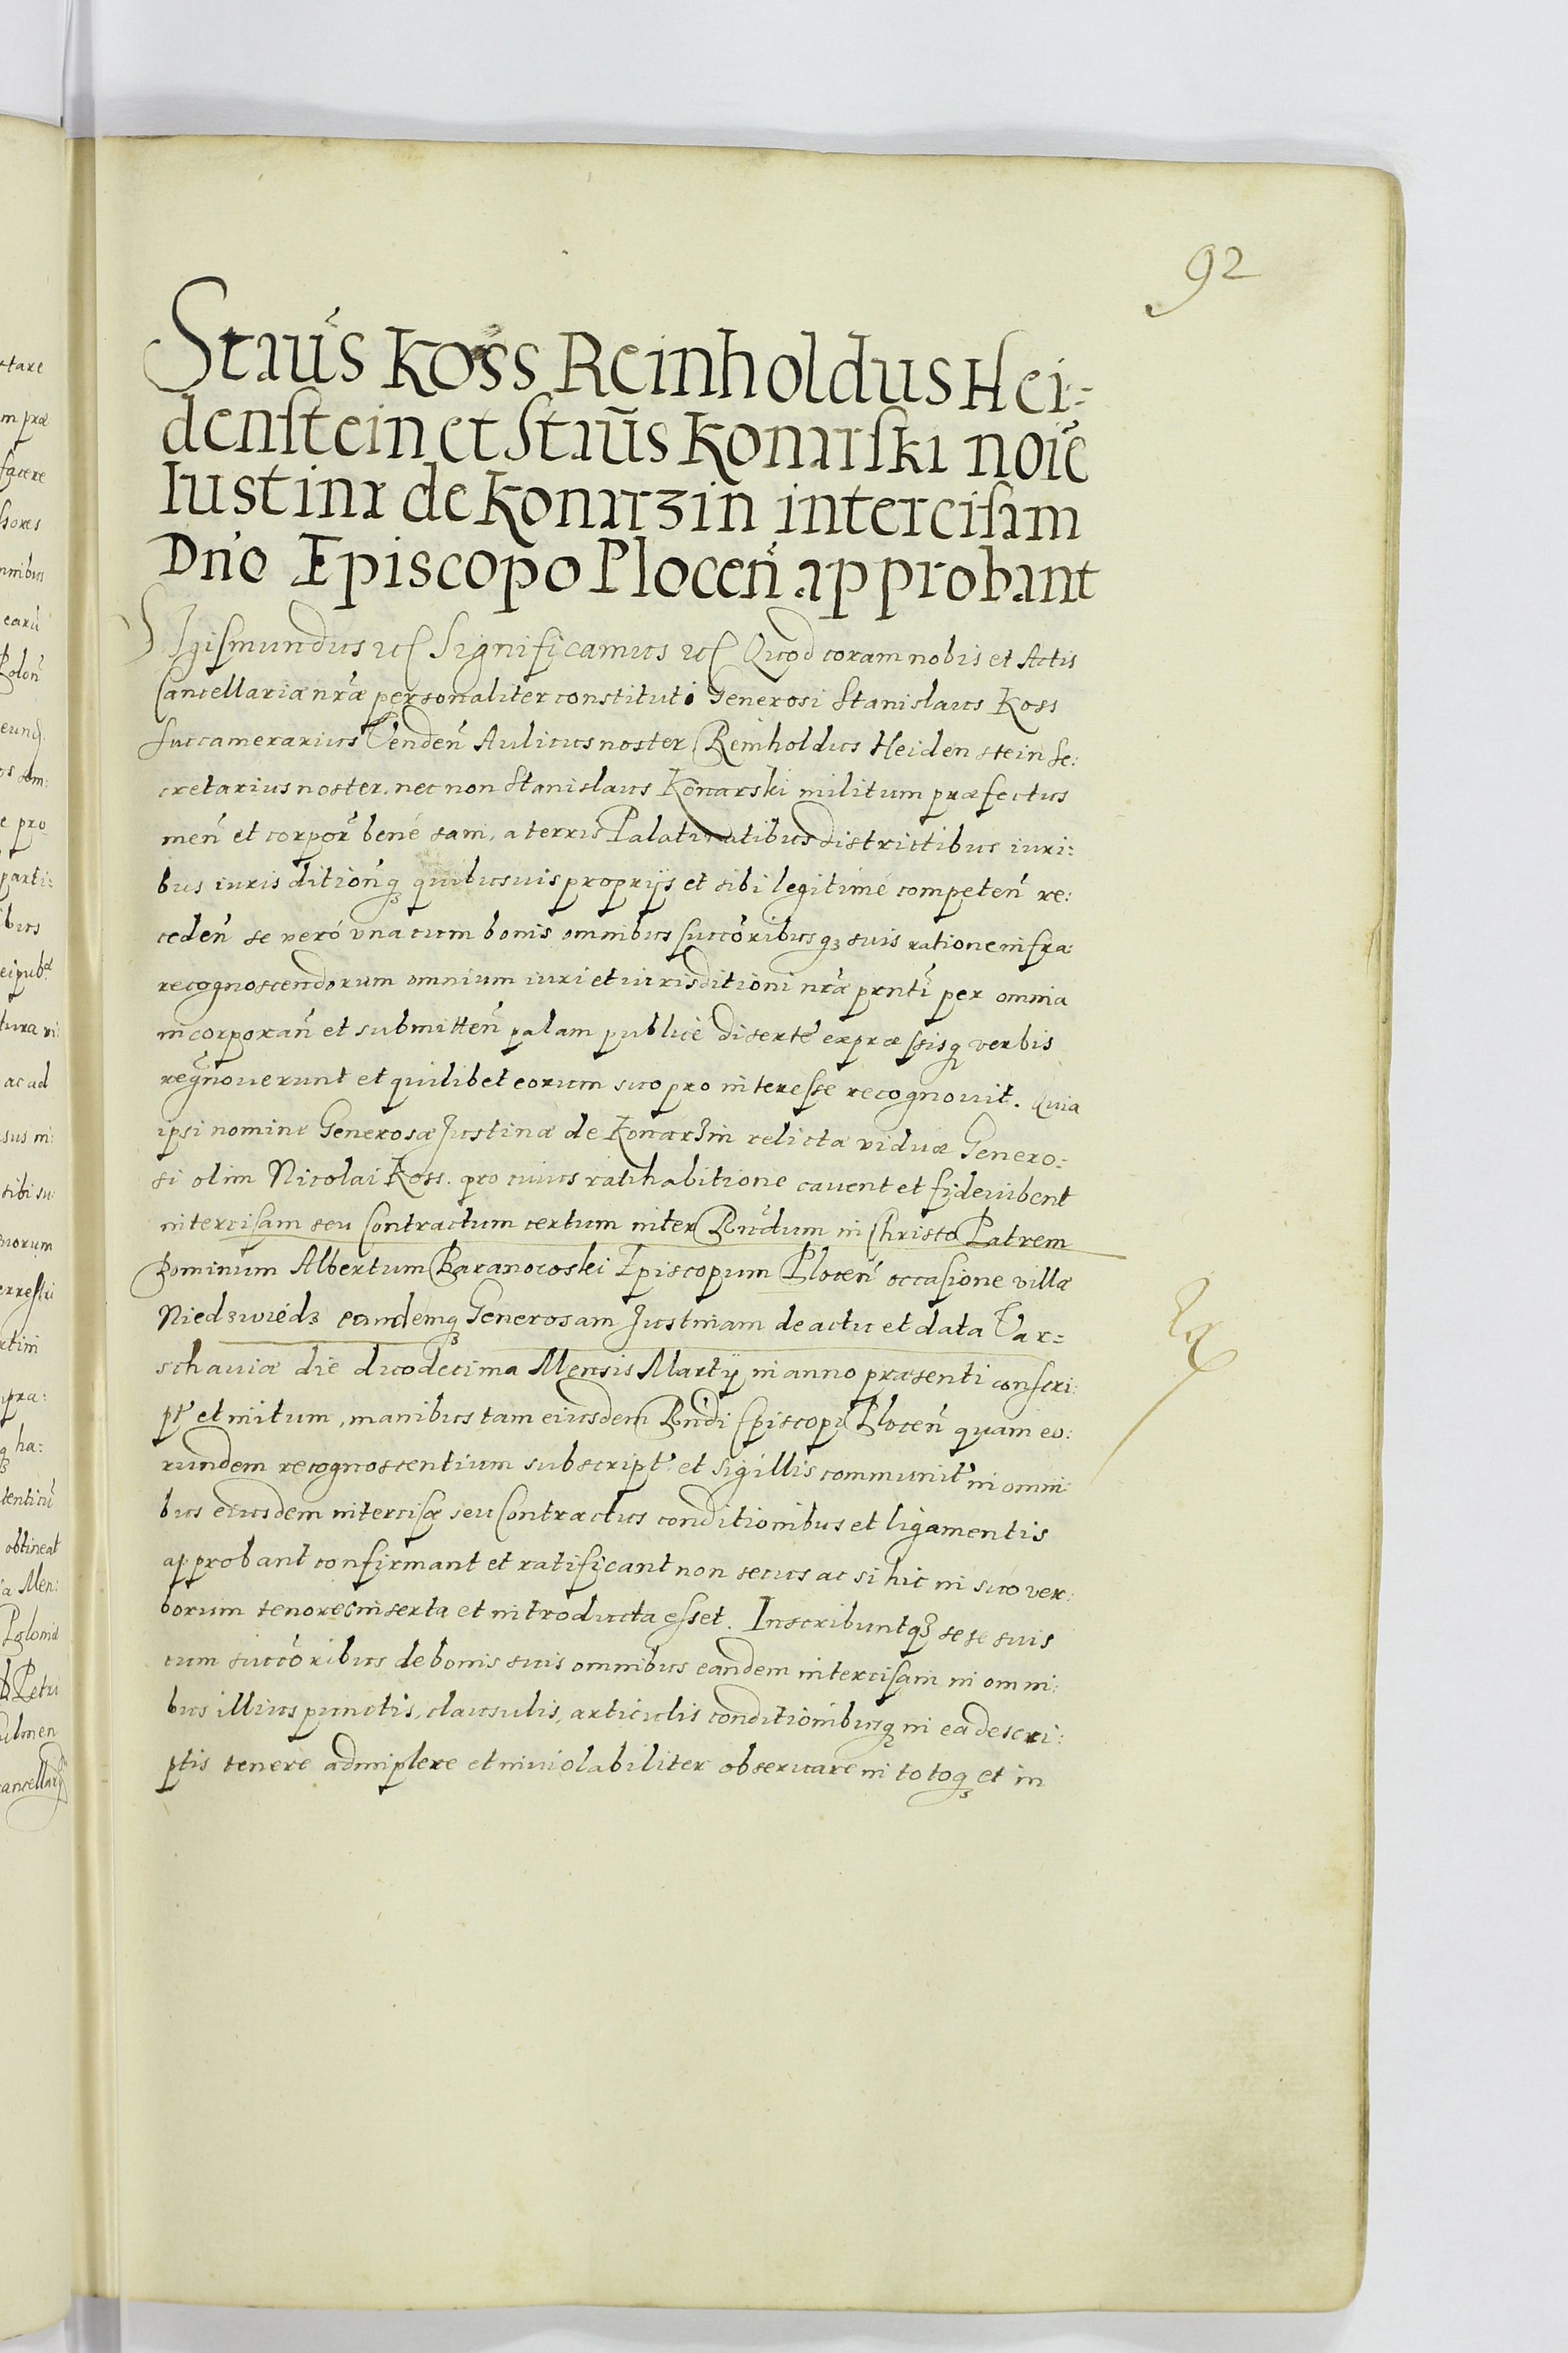 92
Staũs Koss Reinholdus Hei=
denstein et Staũs Konarski noĩe
Iustina de Konarzin intercisam
Dno Episcopo Plocen̄ approbant
Sigismundus etc Significamus etc Quod coram nobis et Actis
Cancellariæ nr̃æ personaliter constituti Generosi Stanislaus Koss
Succamerarius Venden̄ Aulicus noster Reinholdus Heidenstein Se:
cretarius noster. nec non Stanislaus Konarski militum præfectus
men̄ et corpor̃ bené sani, a terris Palatinatibus districtibus iuri:
bus iurisdition̄q quibusuis proprijs et sibi legitimé competen̄ re:
ceden̄ se veró vna cum bonis omnibus succõribusqʒ suis ratione infra
recognoscendorum omnium iuri et iurisditioni nr̃æ pr̃nti per omnia
incorporan̄ et submitten̄ palam publicè disertè expræssisq verbis
regnouerunt et quilibet eorum suo pro interesse recognouit. Quia
ipsi nomine Generosæ Justinæ de Konarzin relictæ viduæ Genero:
si olim Nicolai Koss. pro cuius ratihabitione cauent et fideiubent
intercisam seu Contractum certum inter Rndum in Christo Patrem
Dominum Albertum Baranowski Episcopum Plocen̄ occasione villæ
Niedzwiedz eandemqʒ Generosam Justinam de actu et data Var=
schauiæ die duodecima Mensis Martij in anno præsenti conscri:
pt̃ et initum, manibus tam eiusdem Rndi Episcopi Plocen̄ quam eo:
rundem recognoscentium subscript̃ et sigillis communit̃ in omni
bus eiusdem intercisæ seu Contractus conditionibus et ligamentis
approbant confirmant et ratificant non secus ac si hic in suo ver:
borum tenore inserta et introducta esset. Inscribuntqʒ sese suis
cum succõribus de bonis suis omnibus eandem intercisam in omni:
bus illius punctis, clausulis, articulis conditionibusq in ea descri:
ptis tenere adimplere et inuiolabiliter obseruare in totoqʒ et in